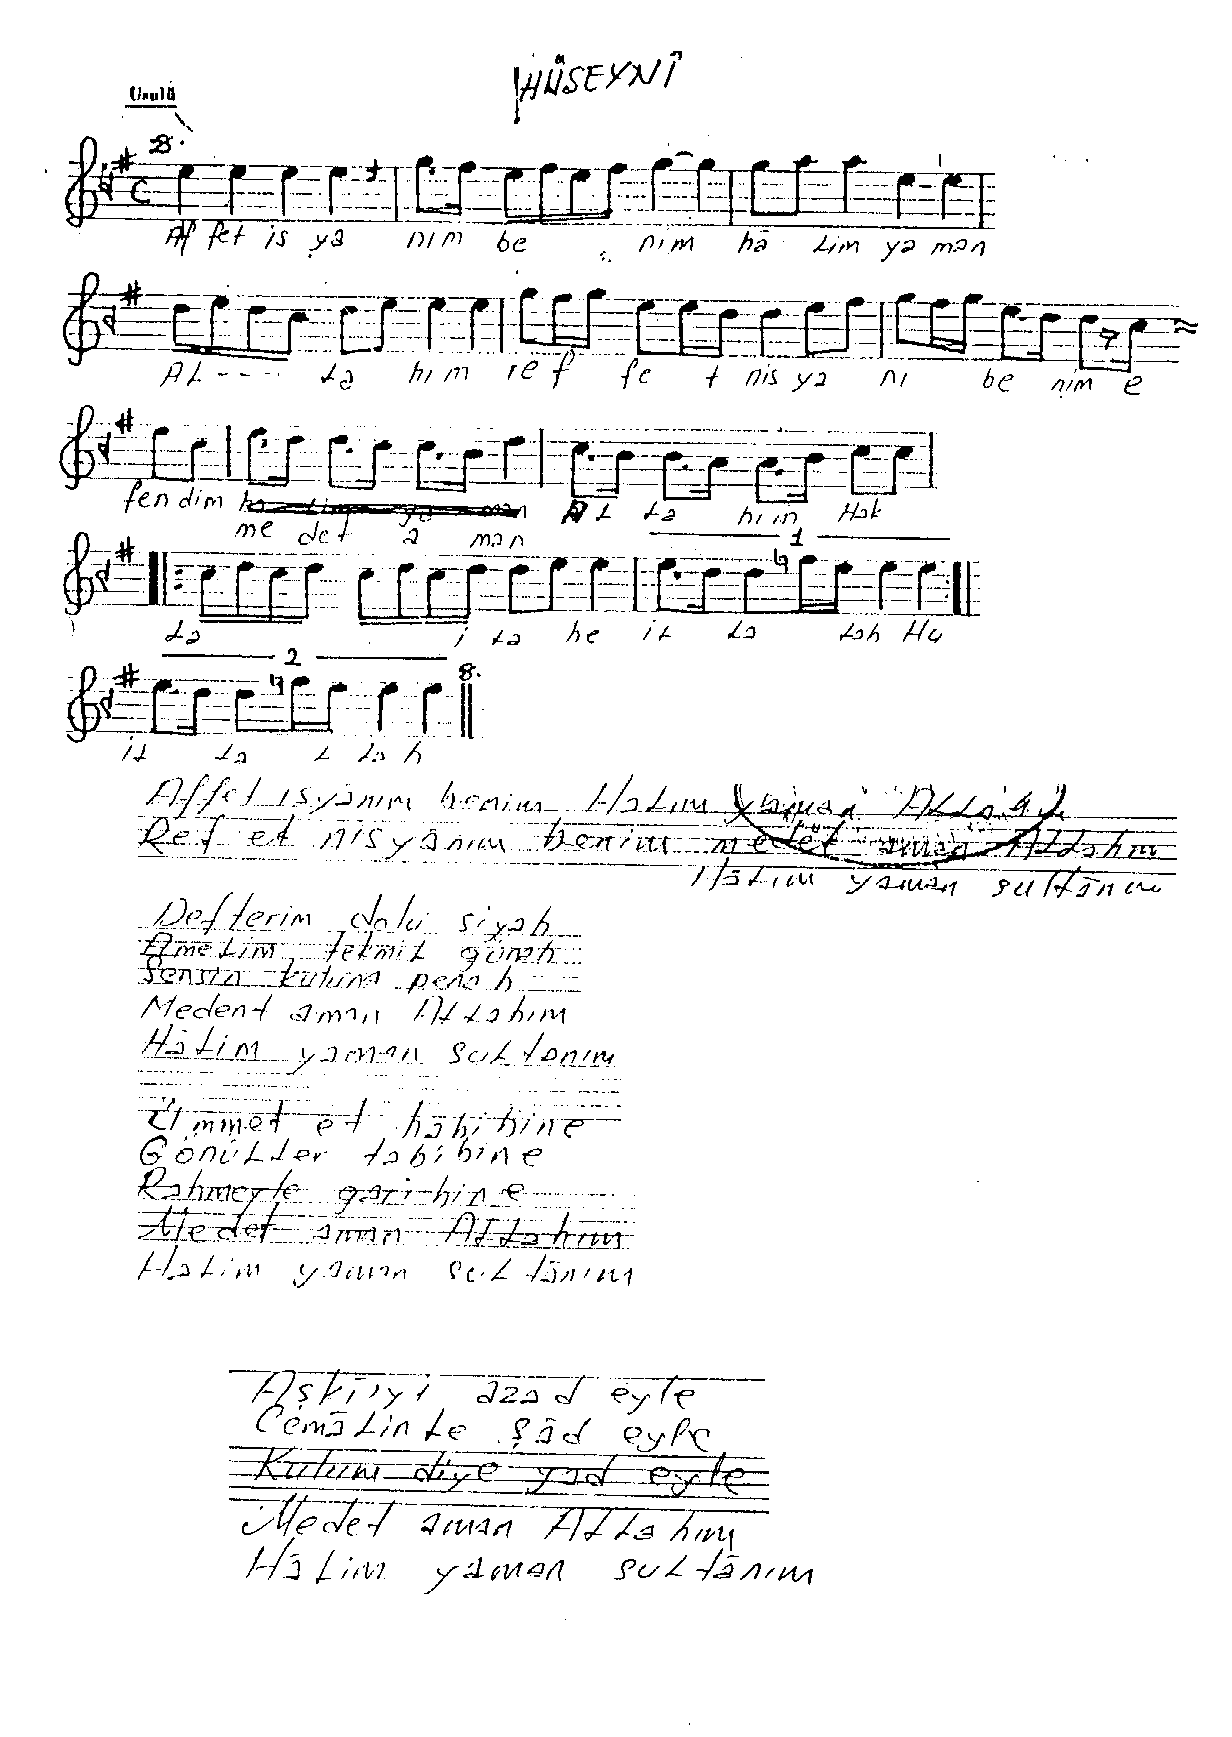 HÜSEYNÎ
Usulü
Af fet is ya nim be nim hâ lim ya man
AL - - - - La him ref fe t nis ya ni be nim e
fen dim ha lim ya man AL La him Hak
me det a man
1
La i La he iL La Lah Hu
2
iL La L La h
Affet isyânım benim Halim yaman Allah
Ref et nisyânım benim medet aman Allahım
Hâlim yaman sultânım
Defterim dolu siyah
Amelim tekmil günah
Sensin kuluna penah
Medent aman Allahım
Hâlim yaman sultanım
Ümmet et hâbibine
Gönüller tabibine
Rahmeyle garibine
Medet aman Allahım
Halim yaman sultânım
Aşkî'yi azad eyle
Cemâlinle şâd eyle
Kulum diye yad eyle
Medet aman Allahım
Hâlim yaman sultânım